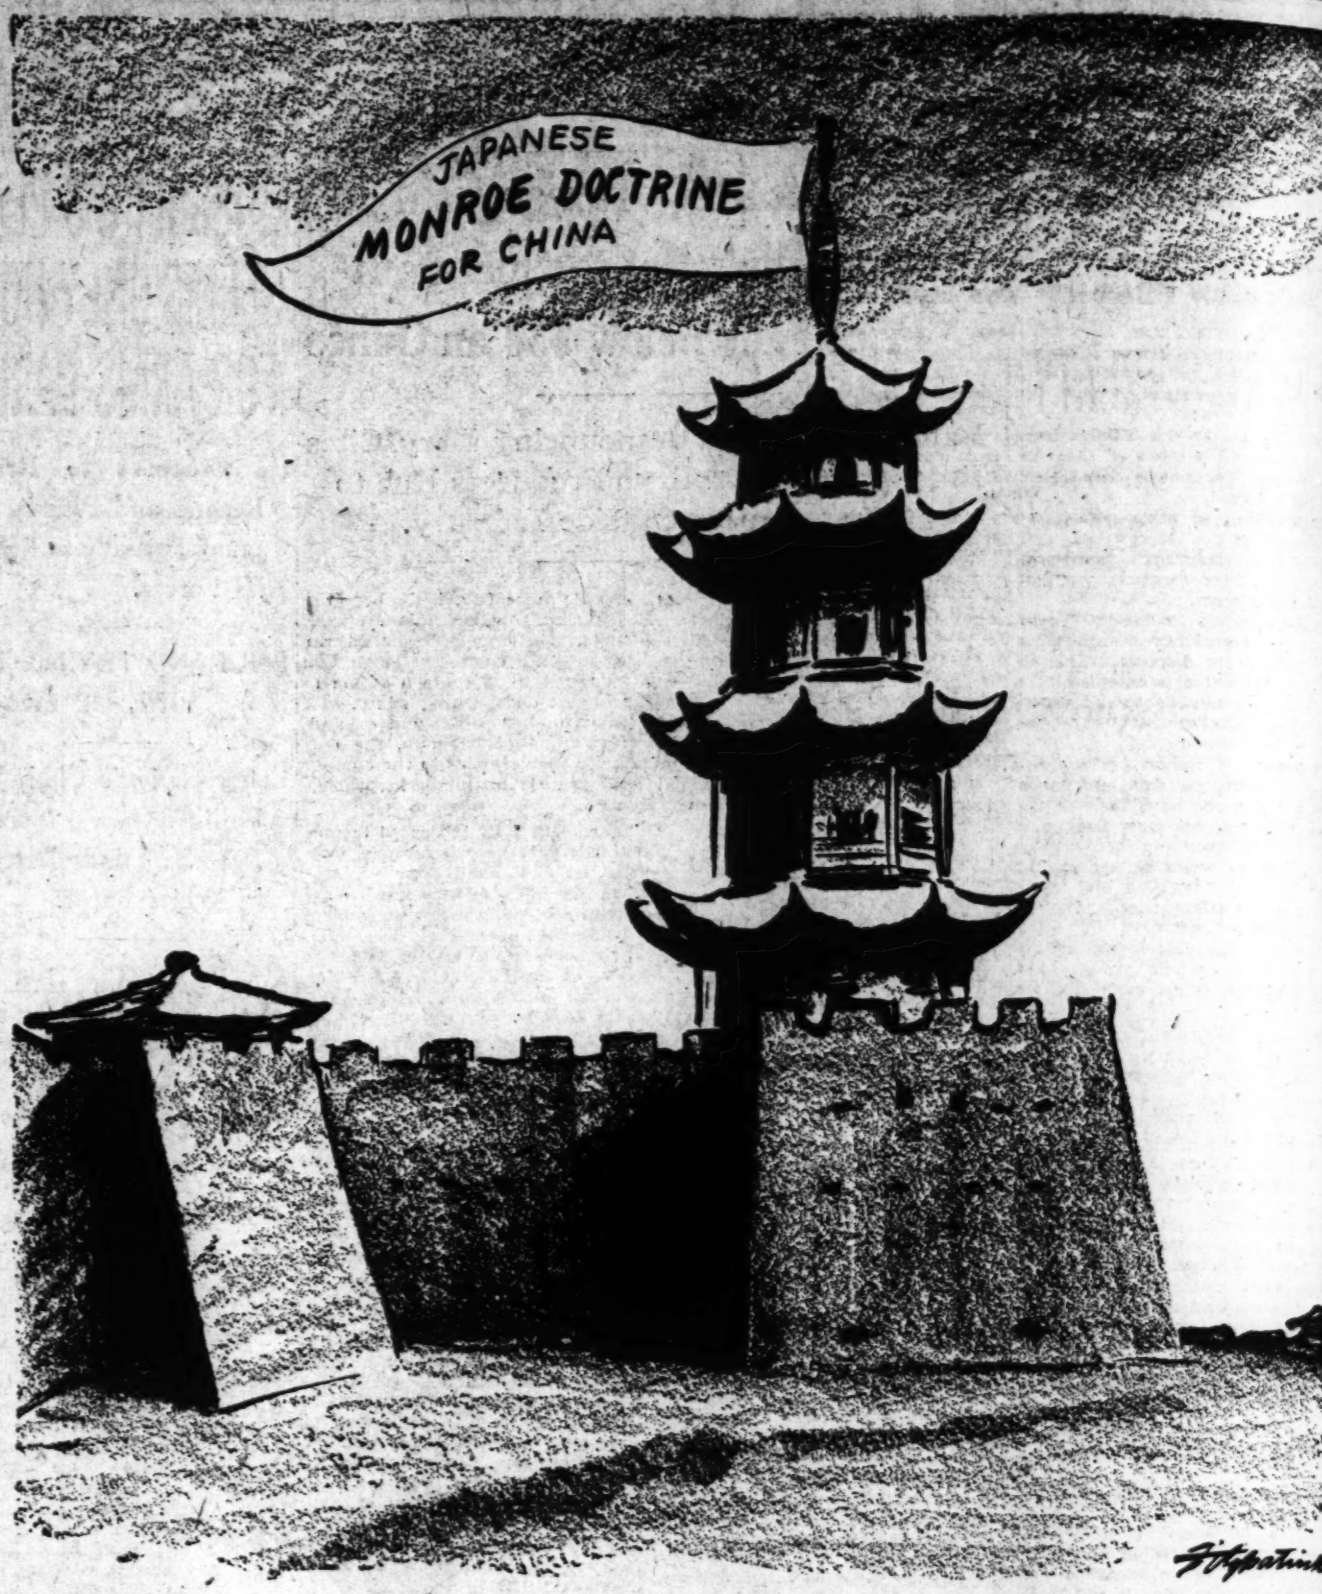 JAPANESE
MONROE DOCTRINE
FOR CHINA
Fitzpatrick